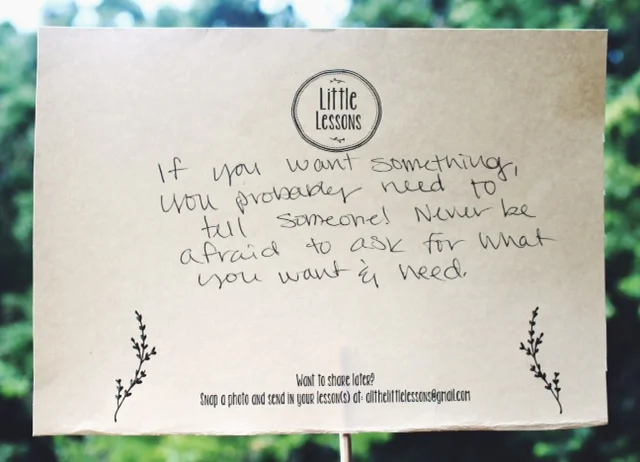 Little
Lessons
If you want something,
you probably need to
tell someone! Never be
afraid to ask for what
you want & need.
Want to share later?
Snap a photo and send in your lesson(s) at: allthelittlelessons@gmail.com